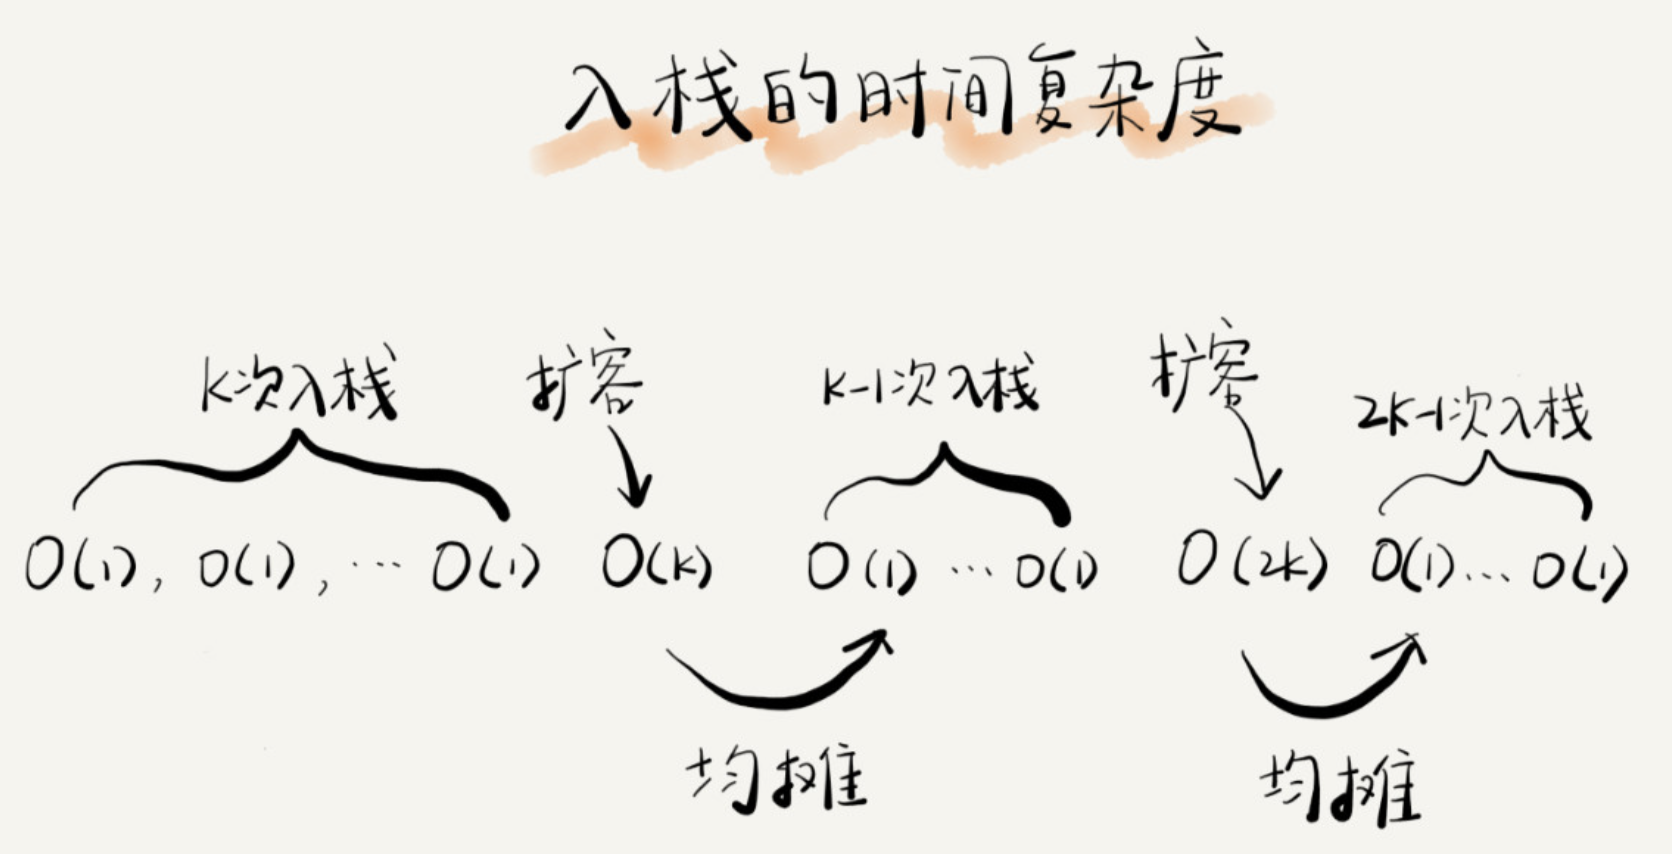 入栈的时间复杂度
K次入栈 扩容 K-1次入栈 扩容 2K-1次入栈
O(1), O(1), ... O(1) O(K) O(1) ... O(1) O(2K) O(1) ... O(1)
均摊 均摊